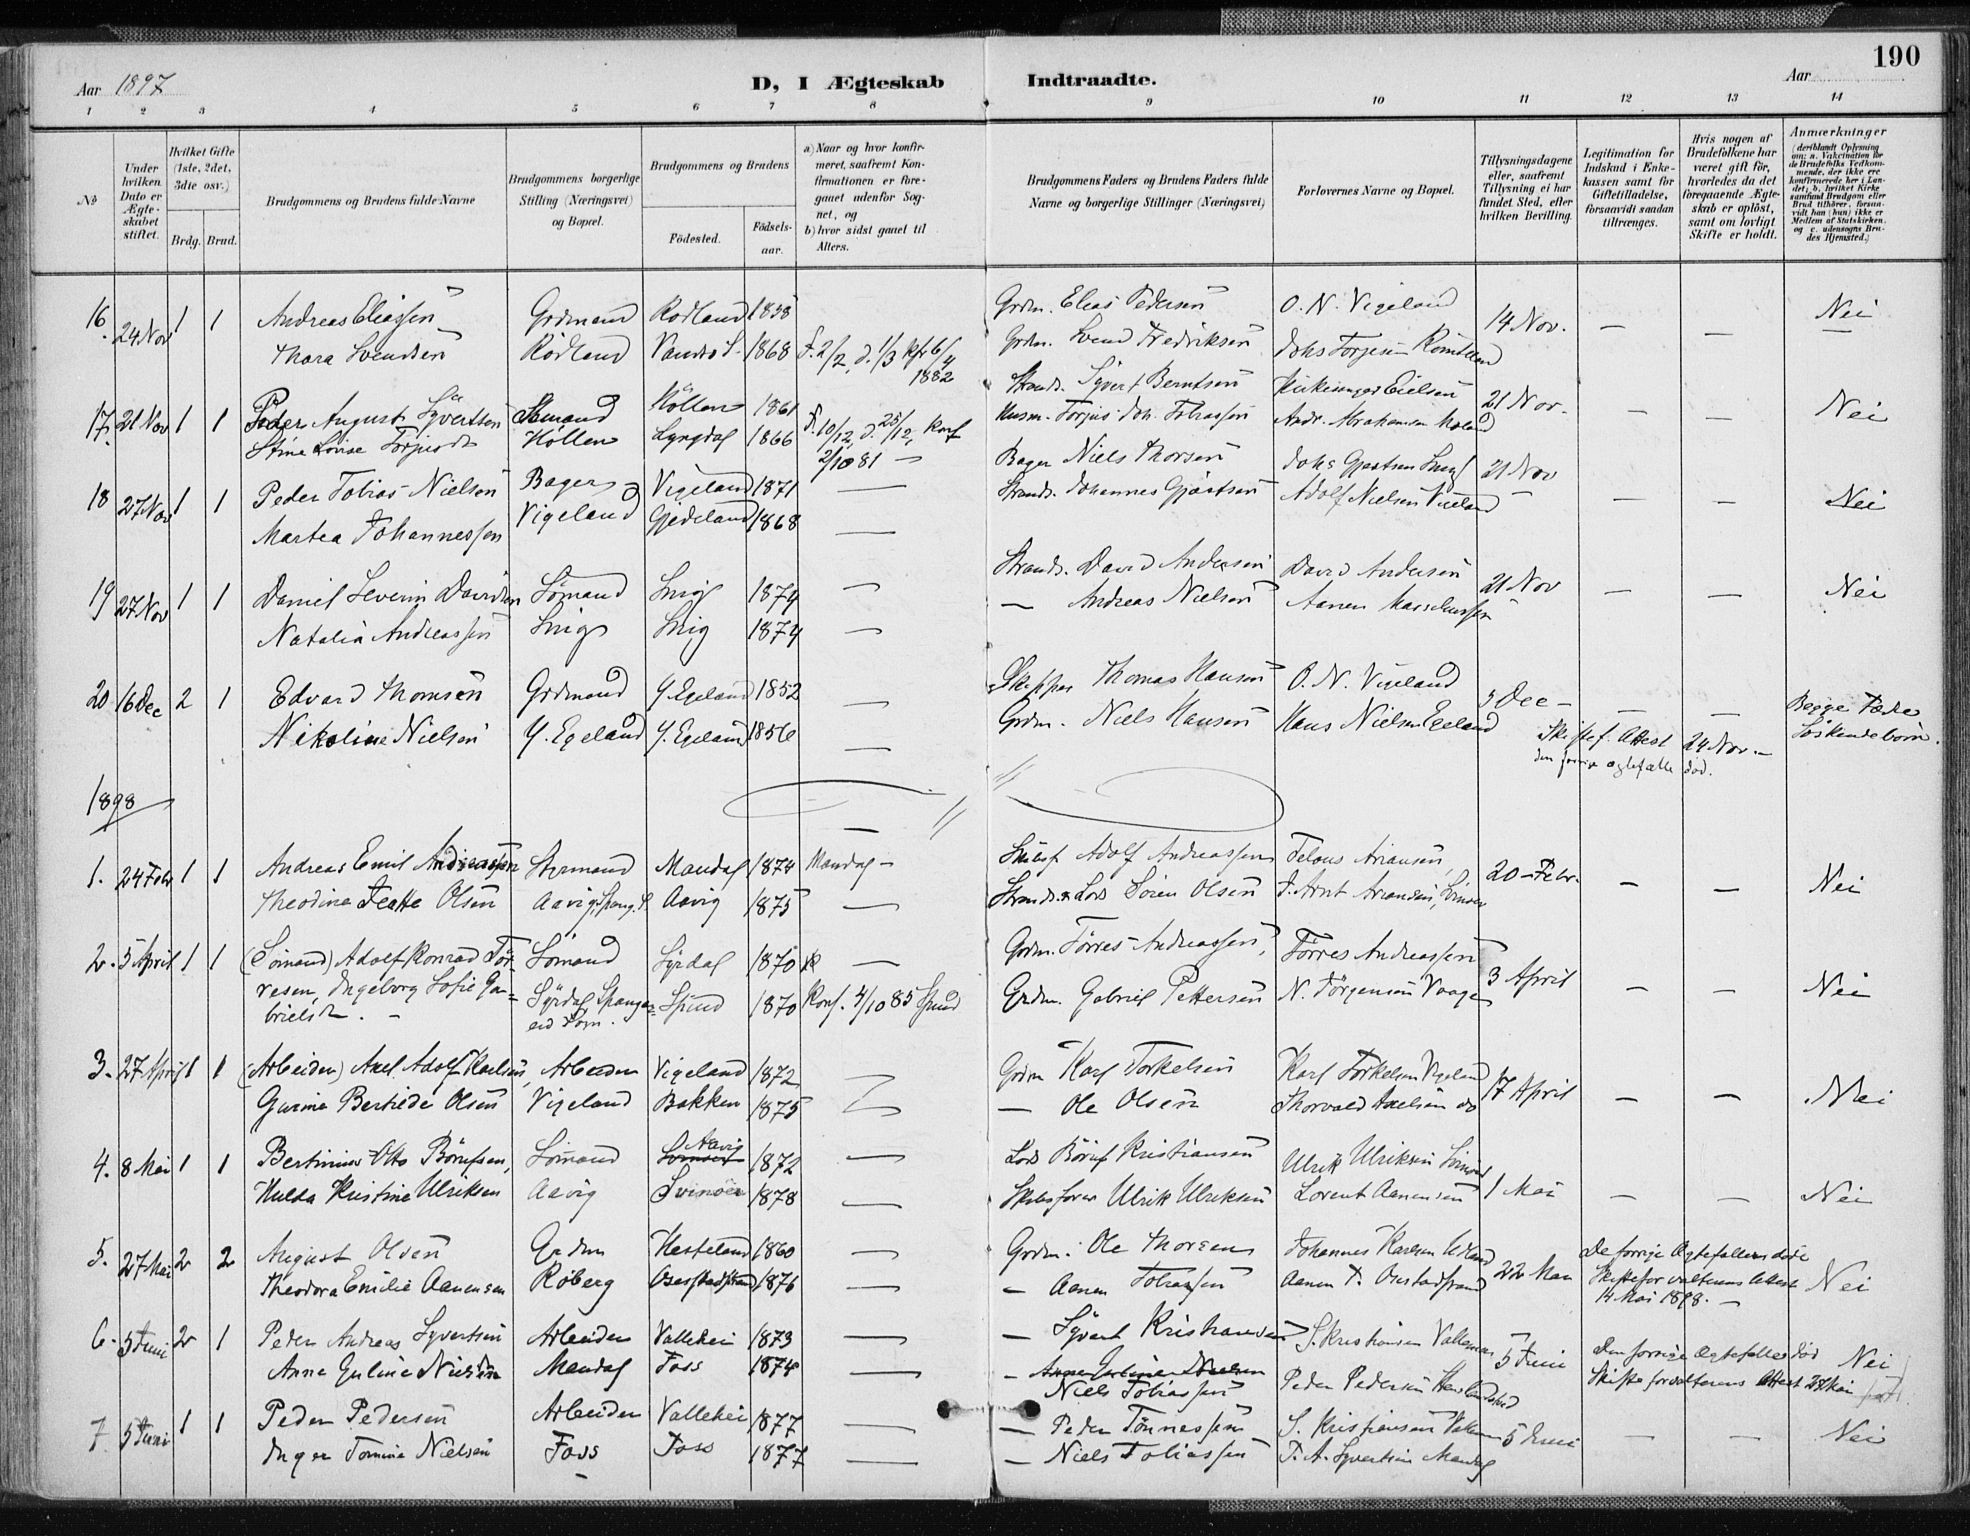 190
Aar 1897
D, I Ægteskab Indtraadte.
Aar
1 2 3 4 5 6 7 8 9 10 11 12 13 14
№
Under hvilken Dato er Ægteskabet stiftet.
Hvilket Gifte (1ste, 2det, 3die osv.)
Brdg. Brud.
Brudgommens og Brudens fulde Navne
Brudgommens borgerlige Stilling (Næringsvei) og Bopæl.
Brudgommens og Brudens
Fødested.
Fødselsaar.
a) Naar og hvor konfirmeret, saafremt Konfirmationen er foregaaet udenfor Sognet, og
b) hvor sidst gaaet til Alters.
Brudgommens Faders og Brudens Faders fulde Navne og borgerlige Stillinger (Næringsvei)
Forlovernes Navne og Bopæl.
Tillysningsdagene eller, saafremt Tillysning ei har fundet Sted, efter hvilken Bevilling.
Legitimation for Indskud i Enkekassen samt for Giftetilladelse, forsaavidt saadan tiltrænges.
Hvis nogen af Brudefolkene har været gift før, hvorledes da det foregaaende Ægteskab er opløst, samt om lovligt Skifte er holdt.
Anmærkninger
16. 24 Nov 1 1 Andreas Eliassen Grdmand Rødland 1858 Grdm. Elias Pedersen O. N. Vigeland 14 Nov. — — Nei
Thora Svendsen Rødland Vandsø 1868 F. 2/2, d. 1/3 kfr 6/4 1882 Grdm. Svend Fredriksen Johs Torjesen
17. 21 Nov 1 1 Peder August Syvertsen Sømand Høllen 1861 Strands. Syvert Berntsen Kirkesanger Eielsen 21 Nov. — — Nei
Stine Lovise Torjusdt Høllen Lyngdal 1866 F. 10/12, d. 25/12, Konf 2/10 81 — Husm. Torjus Joh. Tobiassen Andr. Abrahamsen
18 27 Nov 1 1 Peder Tobias Nielsen Bager Vigeland 1871 — Bager Niels Thorsen Johs Gjertsen 21 Nov — — Nei
Martea Johannessen Vigeland Gjedeland 1868 — Strands. Johannes Gjertsen Adolf Nielsen Vigeland
19 27 Nov 1 1 Daniel Severin Davidsen Sømand Snig 1874 — Strands. David Andersen David Andersen 21 Nov — — Nei
Natalia Andreassen Snig Snig 1874 — — Andreas Nielsen Aanen
20 16 Dec 2 1 Edvard Thomsen Grdmand Y. Egeland 1852 — Skipper Thomas Hansen O. N. Vigeland 5 Dec — — — Begge Fædre
Nikoline Nielsen Y. Egeland Y. Egeland 1856 — Grdm. Niels Hansen Hans Nielsen Egeland Skiftef. Attest 24 Nov. — Søskendebørn.
den forrige ægtefælle død.
1898
1. 24 Febr 1 1 Andreas Emil Andreassen Styrmand Mandal 1874 Mandal — Adolf Andreassen Ariansen 20 Febr. — — Nei
Theodine Jeatte Olsen Aavig Aavig 1875 — Strands. & Lods Sören Olsen J. Arnt Ariansen, Svinør
2. 5 April 1 1 (Sømand) Adolf Konrad Tör- Sømand Syrdal 1870 — Grdm. Törres Andreassen, Törres Andreassen 3 April — — Nei
resen, Ingeborg Sofie Ga- Syrdal Spangereid Spind 1870 Konf. 4/10 85 Spind Grdm. Gabriel Pettersen N. Jörgensen Vaage
brielsdt. —
3. 27 April 1 1 (Arbeider) Axel Adolf Karlsen, Arbeider Vigeland 1872 Grdm Karl Torkelsen Karl Torkelsen Vigeland 17 April — — Nei
Gurine Bertilde Olsen Vigeland Bakken 1875 — Ole Olsen Thorvald Axelsen do
4. 8 Mai 1 1 Bertinius Otto Börufsen, Sømand Aavig 1872 — Lods Böruf Kristiansen Ulrik Ulriksen Svinør 1 Mai — — Nei
Hulda Kristine Ulriksen Aavig Svinöer 1878 — Skibsfører Ulrik Ulriksen Lorent Aanensen
5. 27 Mai 2 2 August Olsen Grdm Hesteland 1860 — Grdm. Ole Thorsen Johannes Karlsen 22 Mai De forrige Ægtefæller døde Nei
Theodora Emilie Aanensen Røberg 1876 — — Aanen Tobiassen Aanen T. Skifteforvalterens Attest
14 Mai 1898. —
6. 5 Juni 2 1 Peder Andreas Syvertsen Arbeider Vallehei 1873 — — Syvert Kristiansen S. Kristiansen 5 Juni Den forrige Ægtefælle død Nei
Anne Guline Nielsen Mandal Foss 1874 — — Anne Guline Nielsen Peder Pedersen Skifteforvalterens Attest 27 Mai
Niels Tobiassen
7 5 Juni 1 1 Peder Pedersen Arbeider Vallehei 1877 — — Peder Tönnessen S. Kristiansen 5 Juni — — Nei
Inger Tomine Nielsen Foss Foss 1877 — — Niels Tobiassen T. A. Syvertsen Mandal